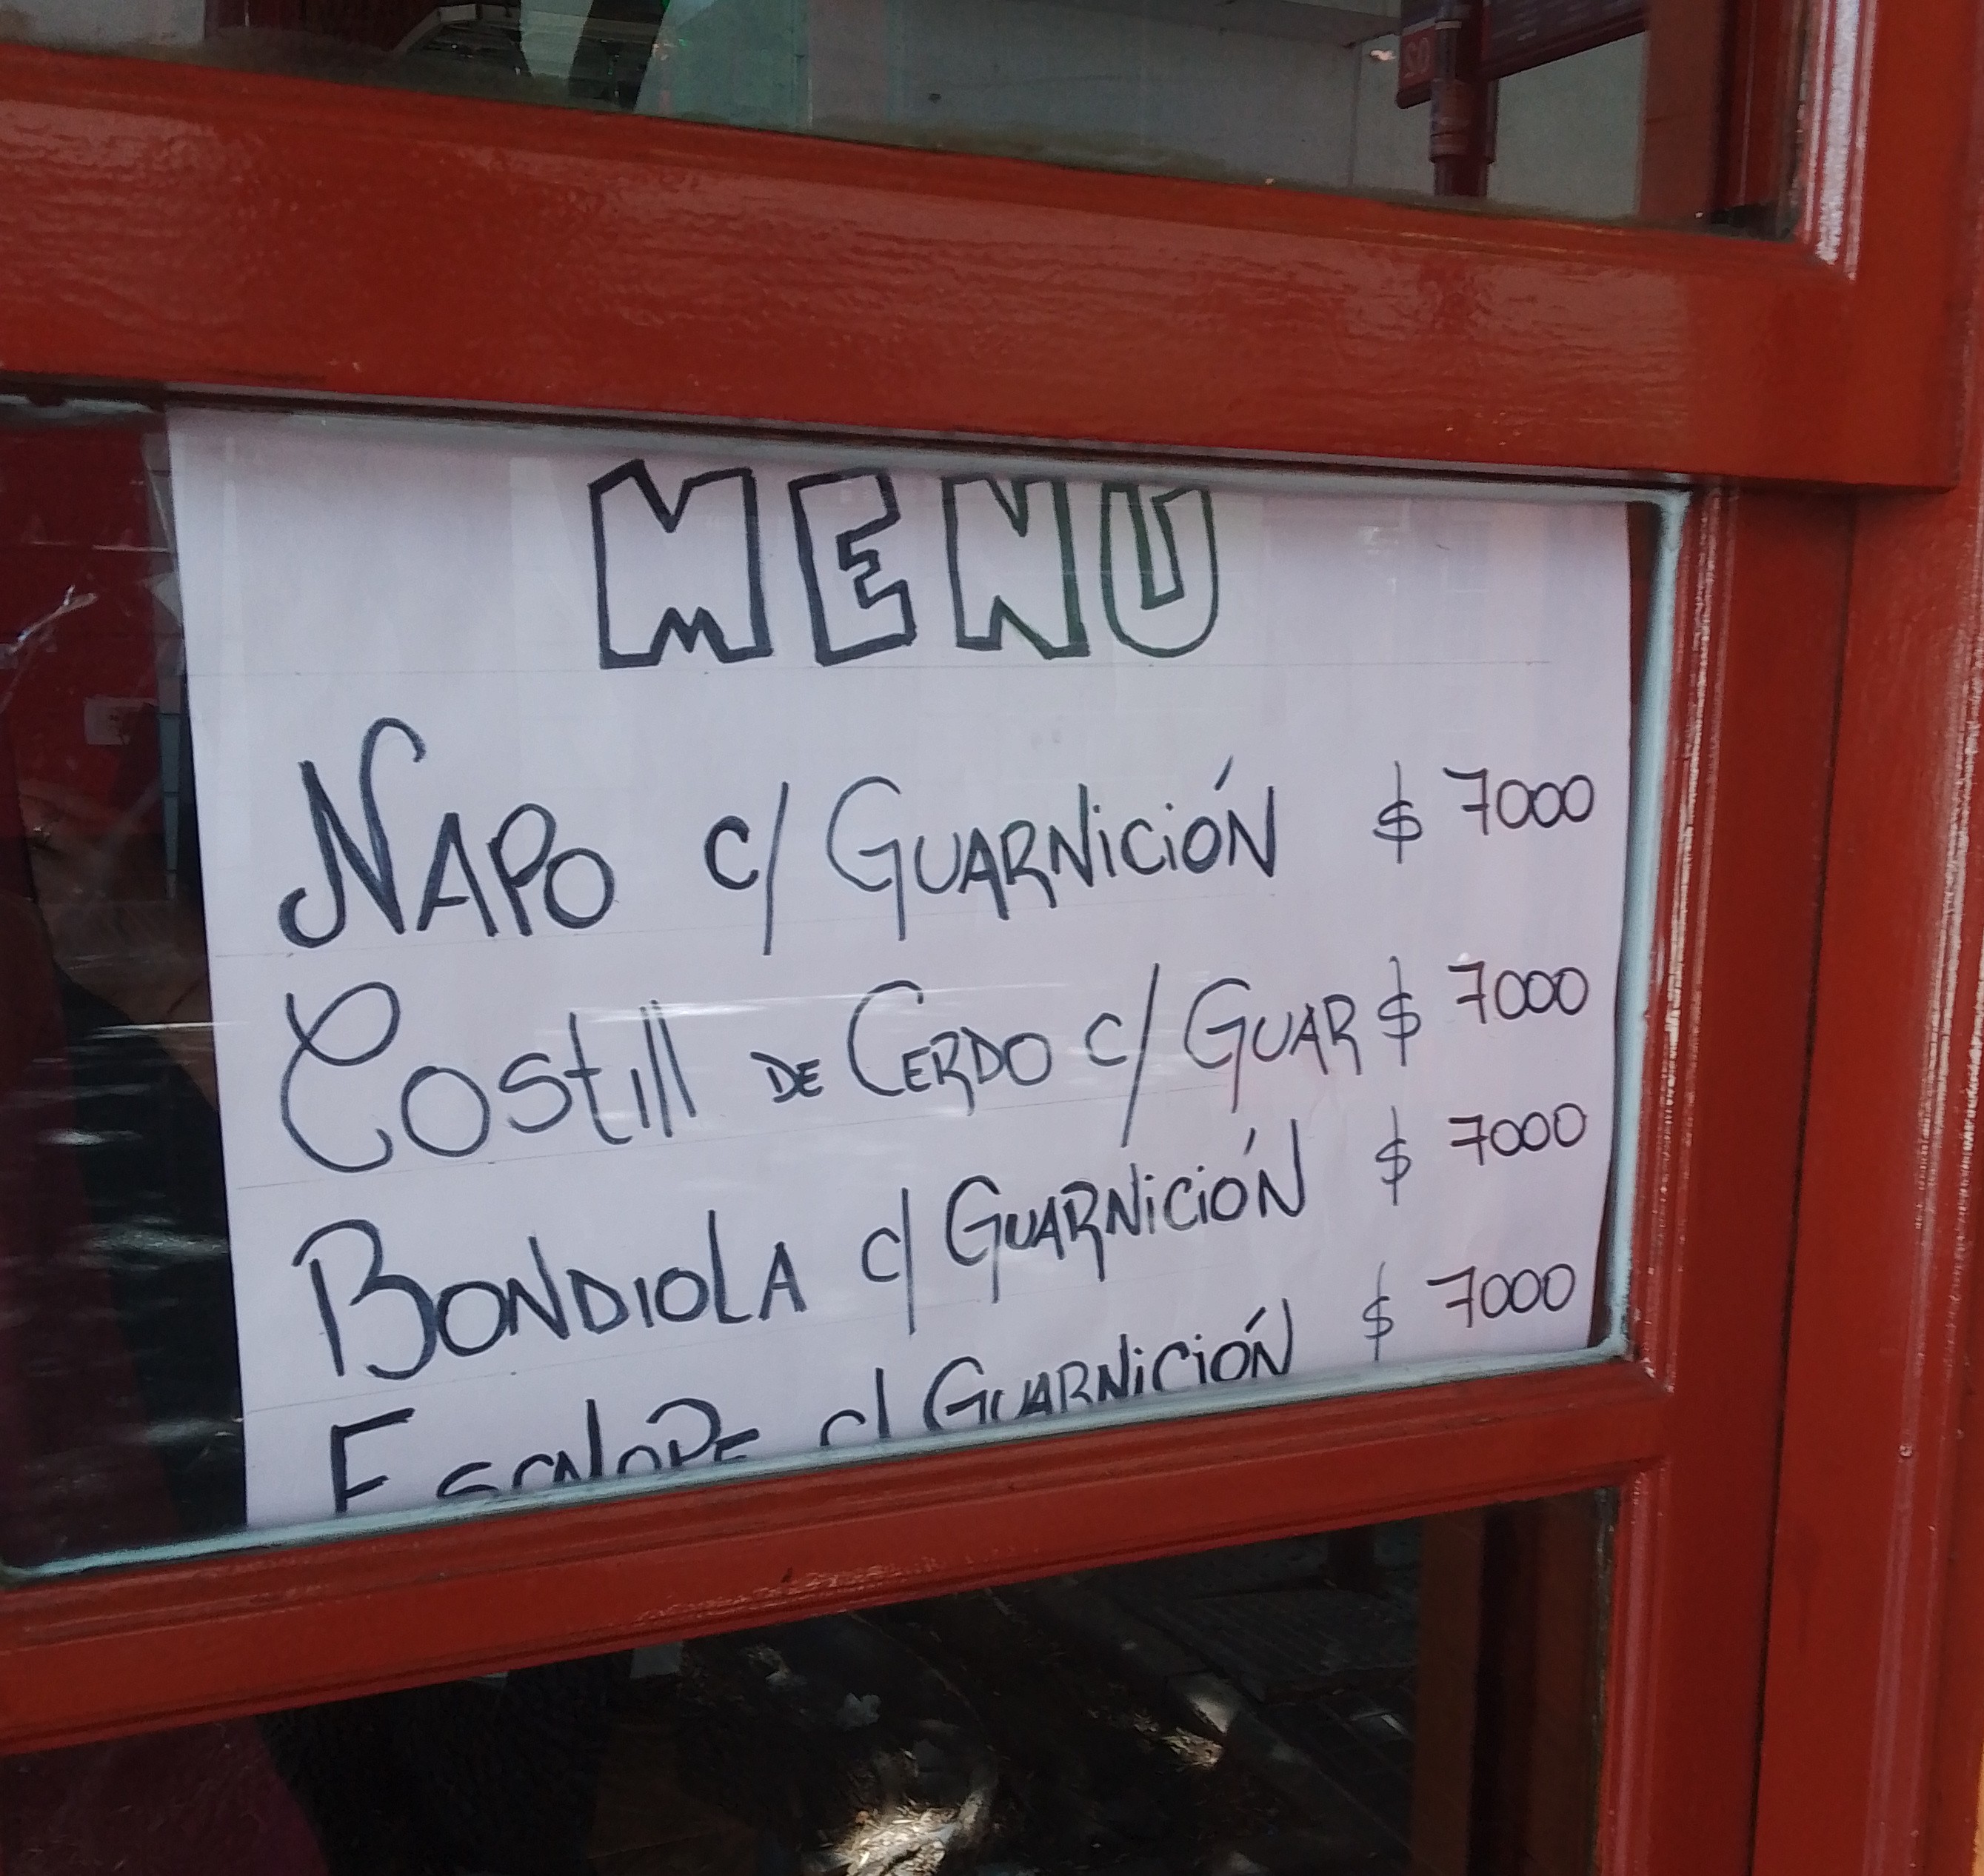 MENU
NAPO c/ GUARNICIÓN $ 7000
Costill DE CERDO c/ GUAR $ 7000
BONDIOLA c/ GUARNICIÓN $ 7000
ESCALOPE c/ GUARNICIÓN $ 7000